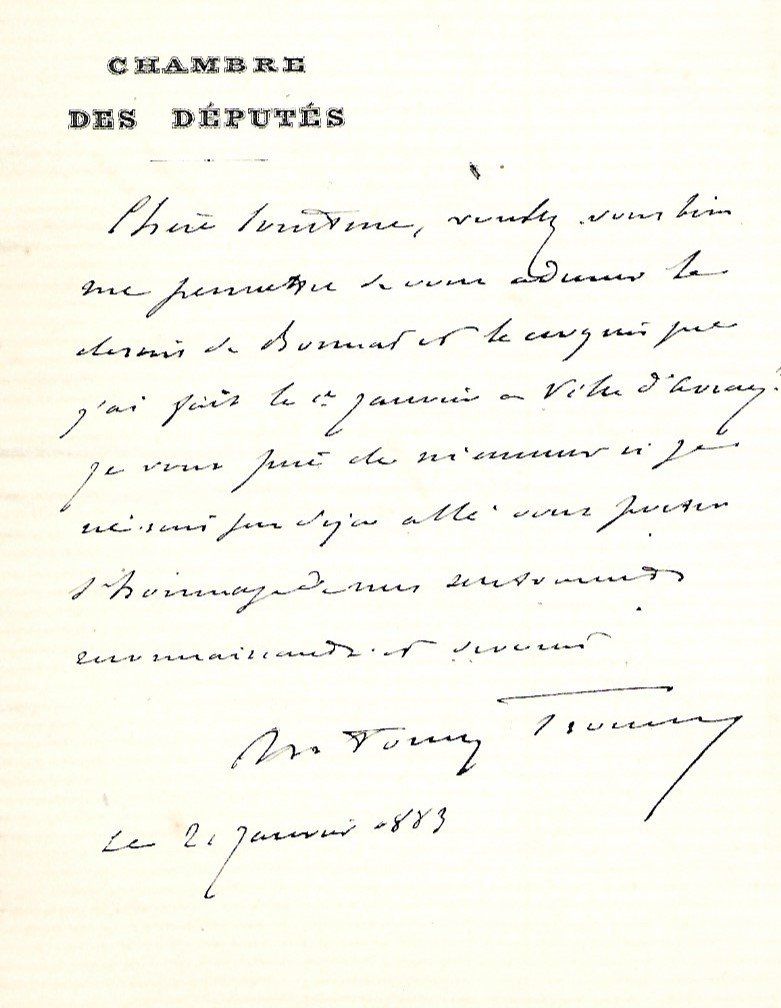 CHAMBRE
DES DÉPUTÉS
Chère Madame, voulez vous bien
me permettre de vous adresser le
dessin de Bonnat et le croquis que
j'ai fait le 1er janvier à Ville d'Avray.
je vous prie de m'excuser si je
ne suis pas déjà allé vous porter
l'hommage de mes sentiments
reconnaissants et dévoués
Antonin Proust
Le 21 janvier 1883